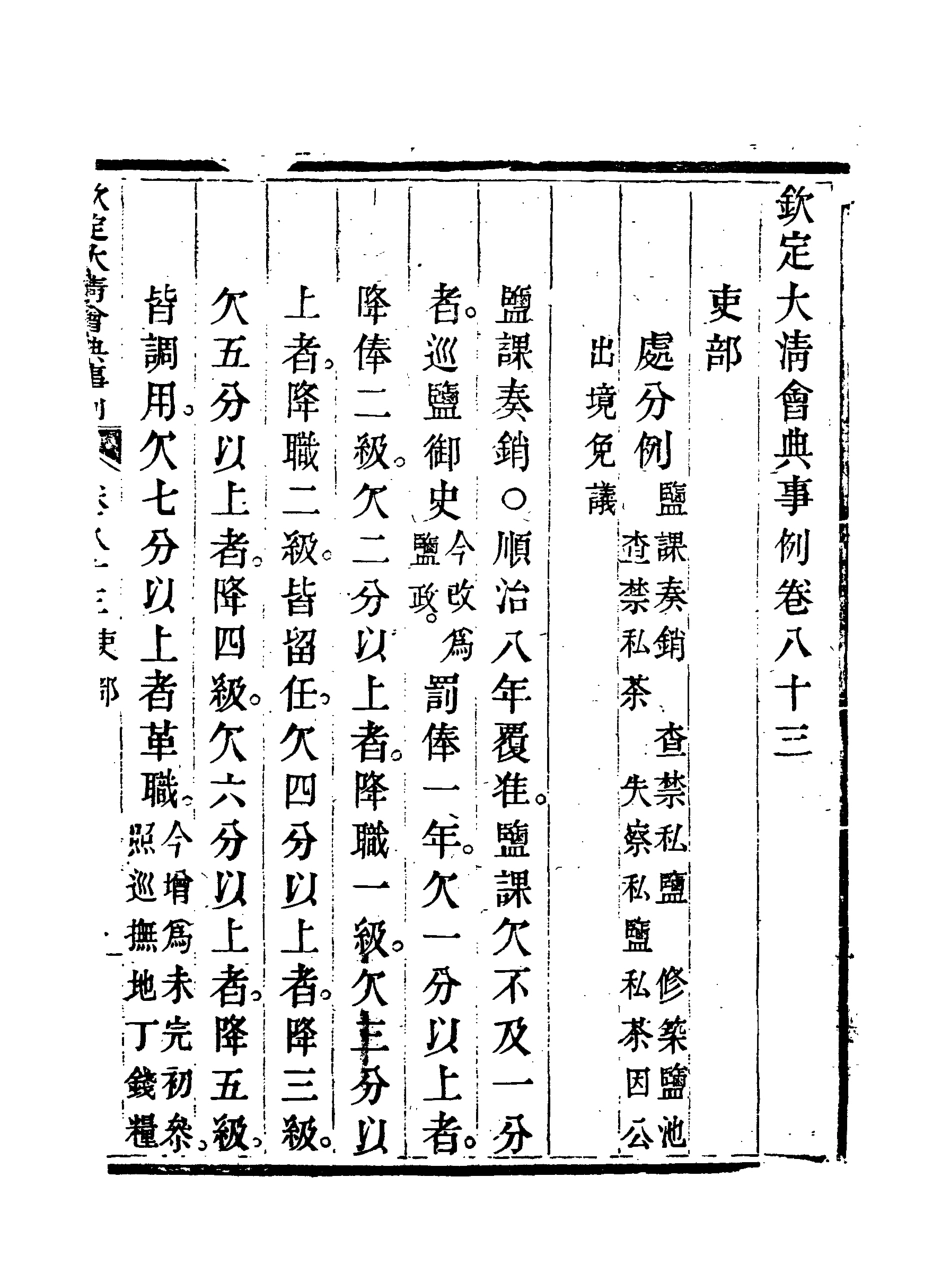 欽定大淸會典事例卷八十三
吏部
處分例 鹽課奏銷 查禁私鹽 修築鹽池
查禁私茶 失察私鹽私茶因公
出境免議
鹽課奏銷○順治八年覆准。鹽課欠不及一分
者。巡鹽御史 今改爲鹽政。 罰俸一年。欠一分以上者。
降俸二級。欠二分以上者。降職一級。欠三分以
上者。降職二級。皆留任。欠四分以上者。降三級。
欠五分以上者。降四級。欠六分以上者。降五級。
皆調用。欠七分以上者革職。 今增爲未完初參。
照巡撫地丁錢糧
欽定大淸會典事例 卷八十三 吏部 一